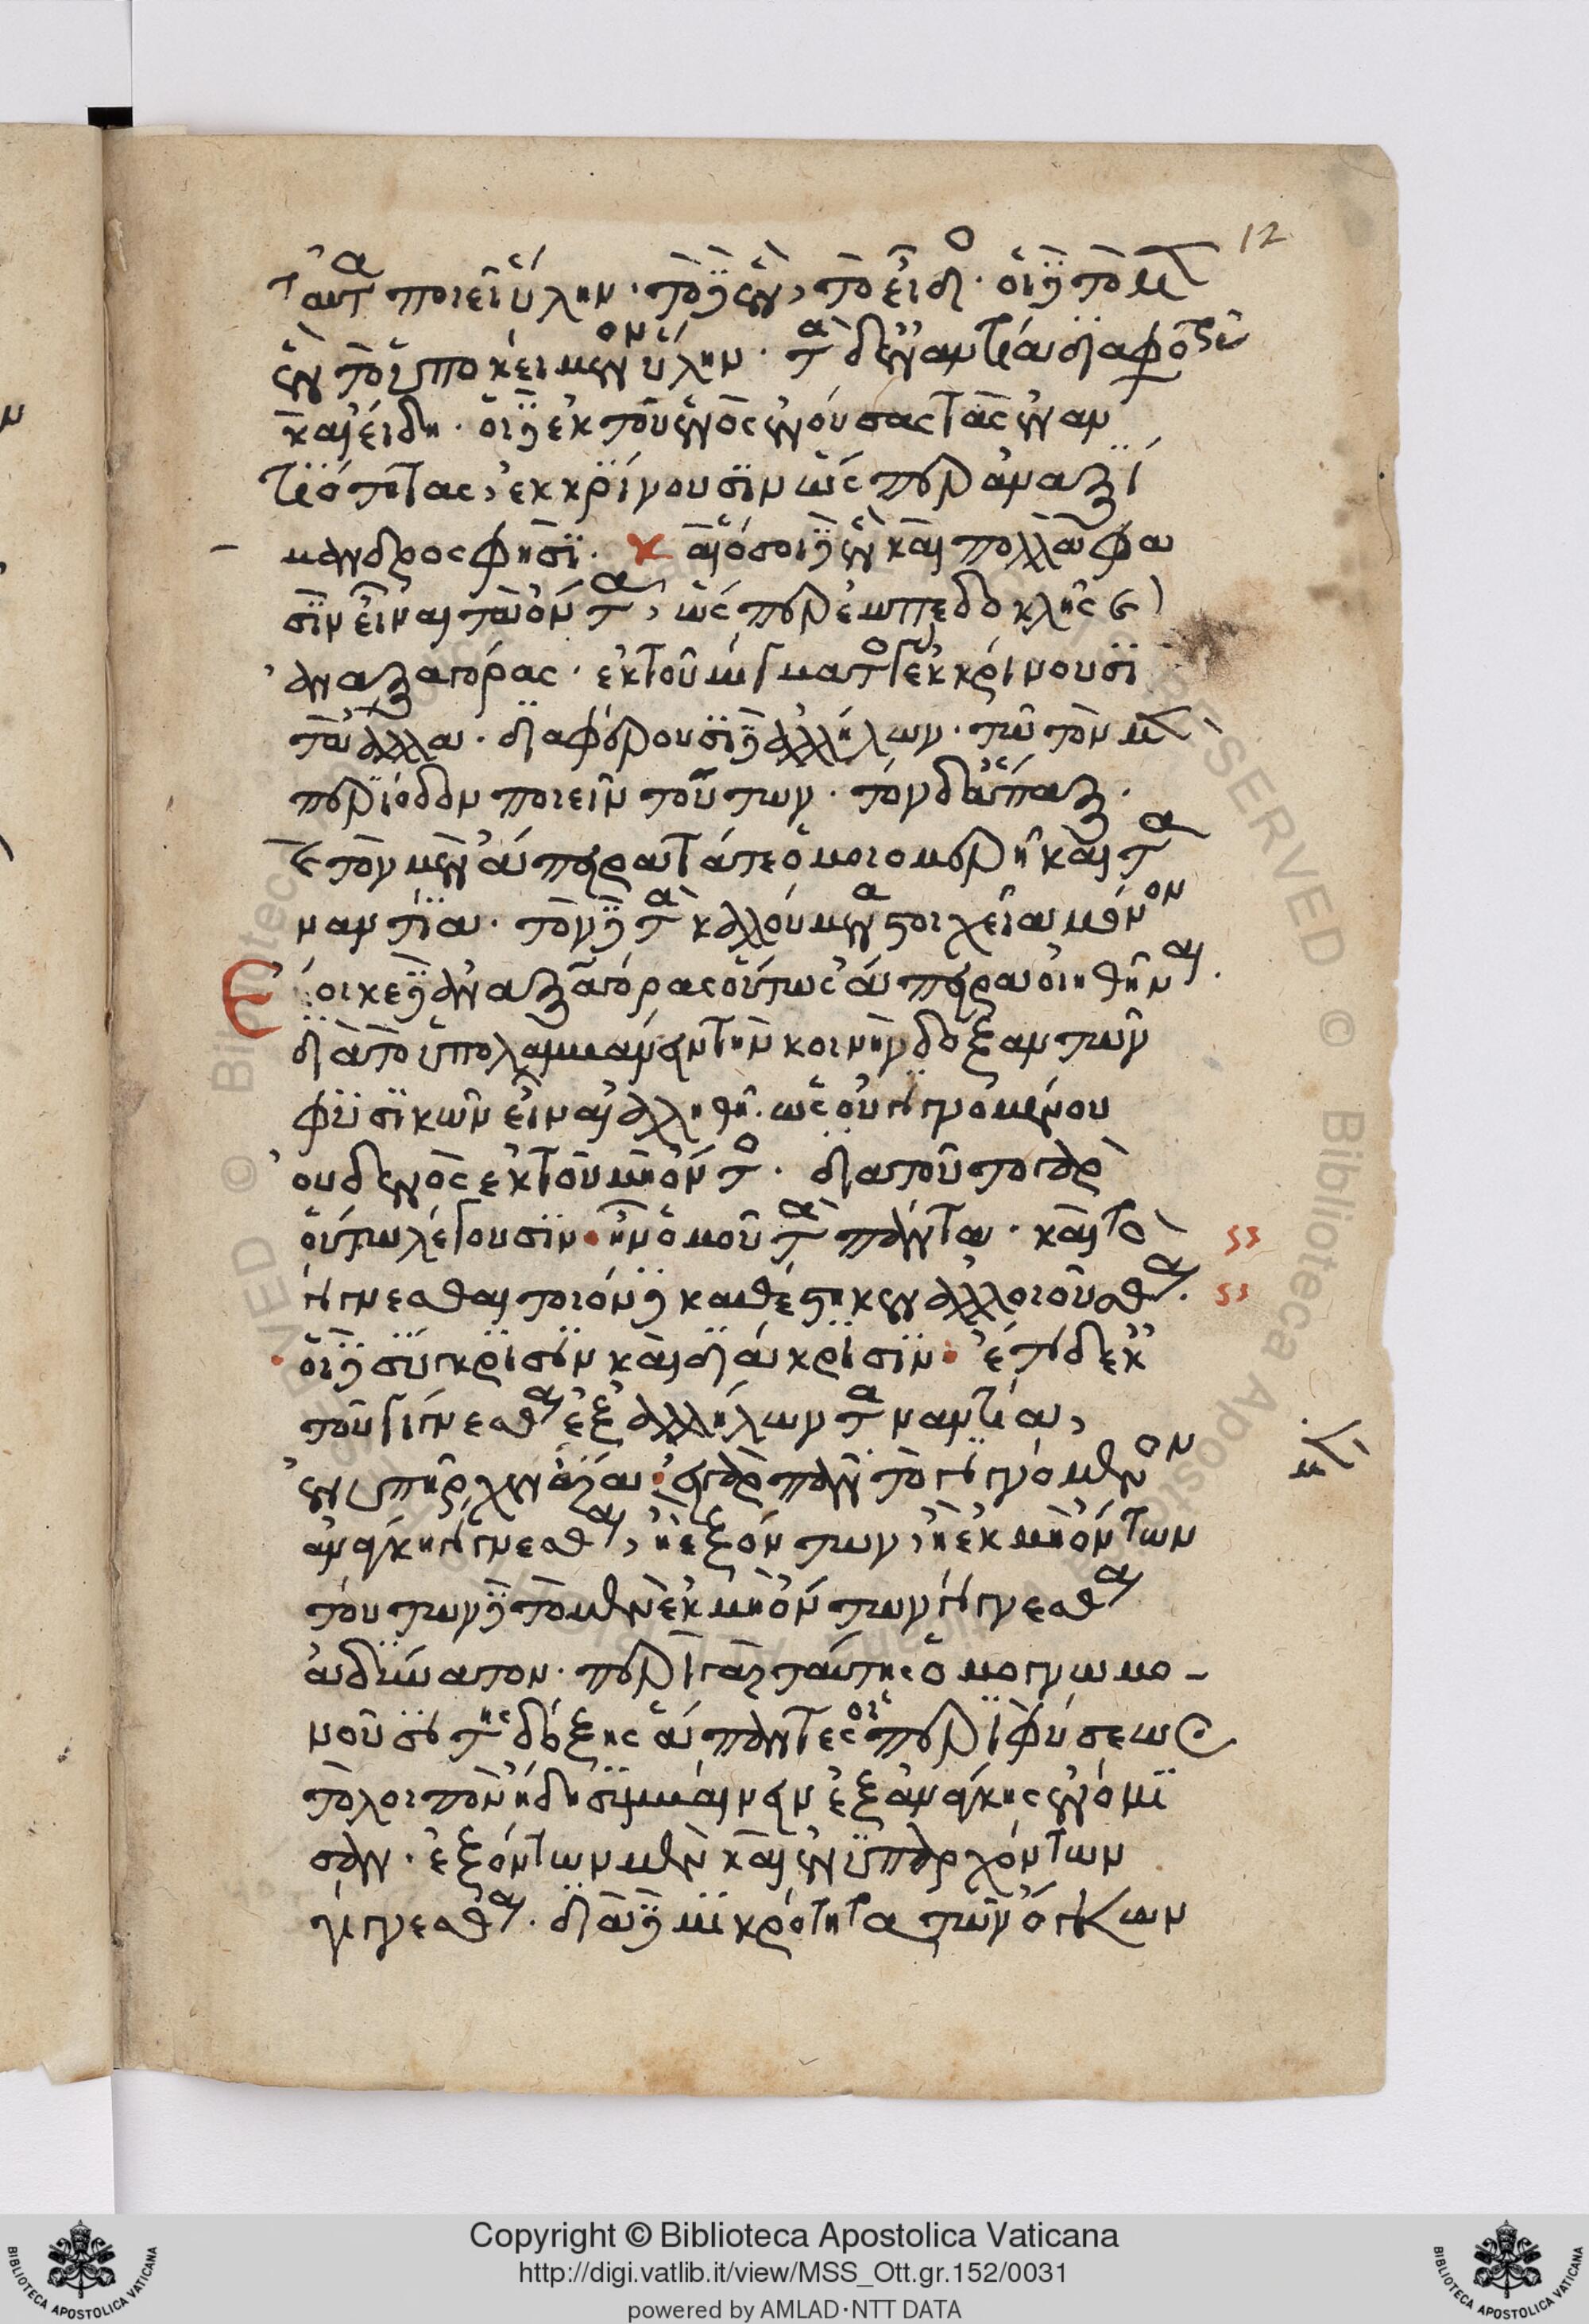 12
ταῦτα ποιεῖ ὕλην· τὸ δὲ ἓν, τὸ εἶδος· οἱ δὲ τὸ μὲν
ἓν τὸ ὑποκείμενον ὕλην· τὰ δ' ἐναντία διαφορὰς
καὶ εἴδη· οἱ δ' ἐκ τοῦ ἑνὸς ἐνούσας τὰς ἐναν
τιότητας, ἐκκρίνουσιν ὥσπερ ἀναξί
μανδρος φησὶ· καὶ ὅσοι δὲ ἓν καὶ πολλά φα
σιν εἶναι τὰ ὄντα, ὥσπερ ἐμπεδοκλῆς καὶ
ἀναξαγόρας· ἐκ τοῦ μίγματος γὰρ ἐκκρίνουσι
τὰ ἄλλα· διαφέρουσι δὲ ἀλλήλων· τῷ τὸν μὲν
περίοδον ποιεῖν τούτων· τὸν δ' ἅπαξ·
καὶ τὸν μὲν ἄπειρα τά τε ὁμοιομερῆ καὶ τὰ
ναντία· τὸν δὲ τὰ καλούμενα στοιχεῖα μόνον
Ἔοικε δὲ ἀναξαγόρας οὕτως ἄπειρα οἰηθῆναι·
διὰ τὸ ὑπολαμβάνειν τὴν κοινὴν δόξαν τῶν
φυσικῶν εἶναι ἀληθῆ· ὡς οὐ γιγνομένου
οὐδενὸς ἐκ τοῦ μὴ ὄντος· διατοῦτο γὰρ
οὕτω λέγουσιν· ἦν ὁμοῦ τὰ πάντα· καὶ τὸ
γίγνεσθαι τοιόνδε καθέστηκεν ἀλλοιοῦσθαι·
οἱ δὲ σύγκρισιν καὶ διάκρισιν· ἔτι δ' ἐκ
τοῦ γίγνεσθαι ἐξ ἀλλήλων τἀναντία,
ἐνυπῆρχεν ἄρα· εἰ γὰρ πᾶν τὸ γιγνόμενον
ἀνάγκη γίγνεσθαι, ἢ ἐξ ὄντων, ἢ ἐκ μὴ ὄντων
τούτων δὲ τὸ μὲν ἐκ μὴ ὄντων γίγνεσθαι
ἀδύνατον· περὶ γὰρ ταύτης ὁμογνωμο-
νοῦσι τῆς δόξης ἅπαντες οἱ περὶ φύσεως
τὸ λοιπὸν ἤδη συμβαίνειν ἐξ ἀνάγκης ἐνόμι
σαν· ἐξ ὄντων μὲν καὶ ἐνυπαρχόντων
γίγνεσθαι· διὰ δὲ μικρότητα τῶν ὄγκων